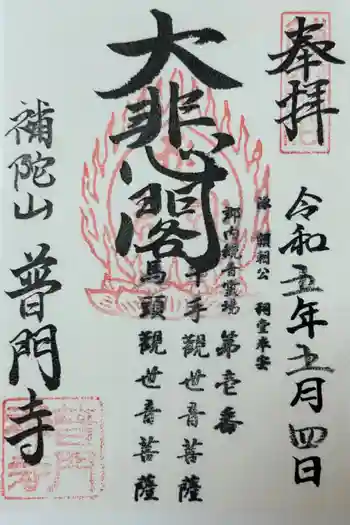 奉拝
令和五年五月四日
祠堂奉安
郡内観音霊場 第壱番
大悲閣
千手観世音菩薩
馬頭観世音菩薩
補陀山 普門寺